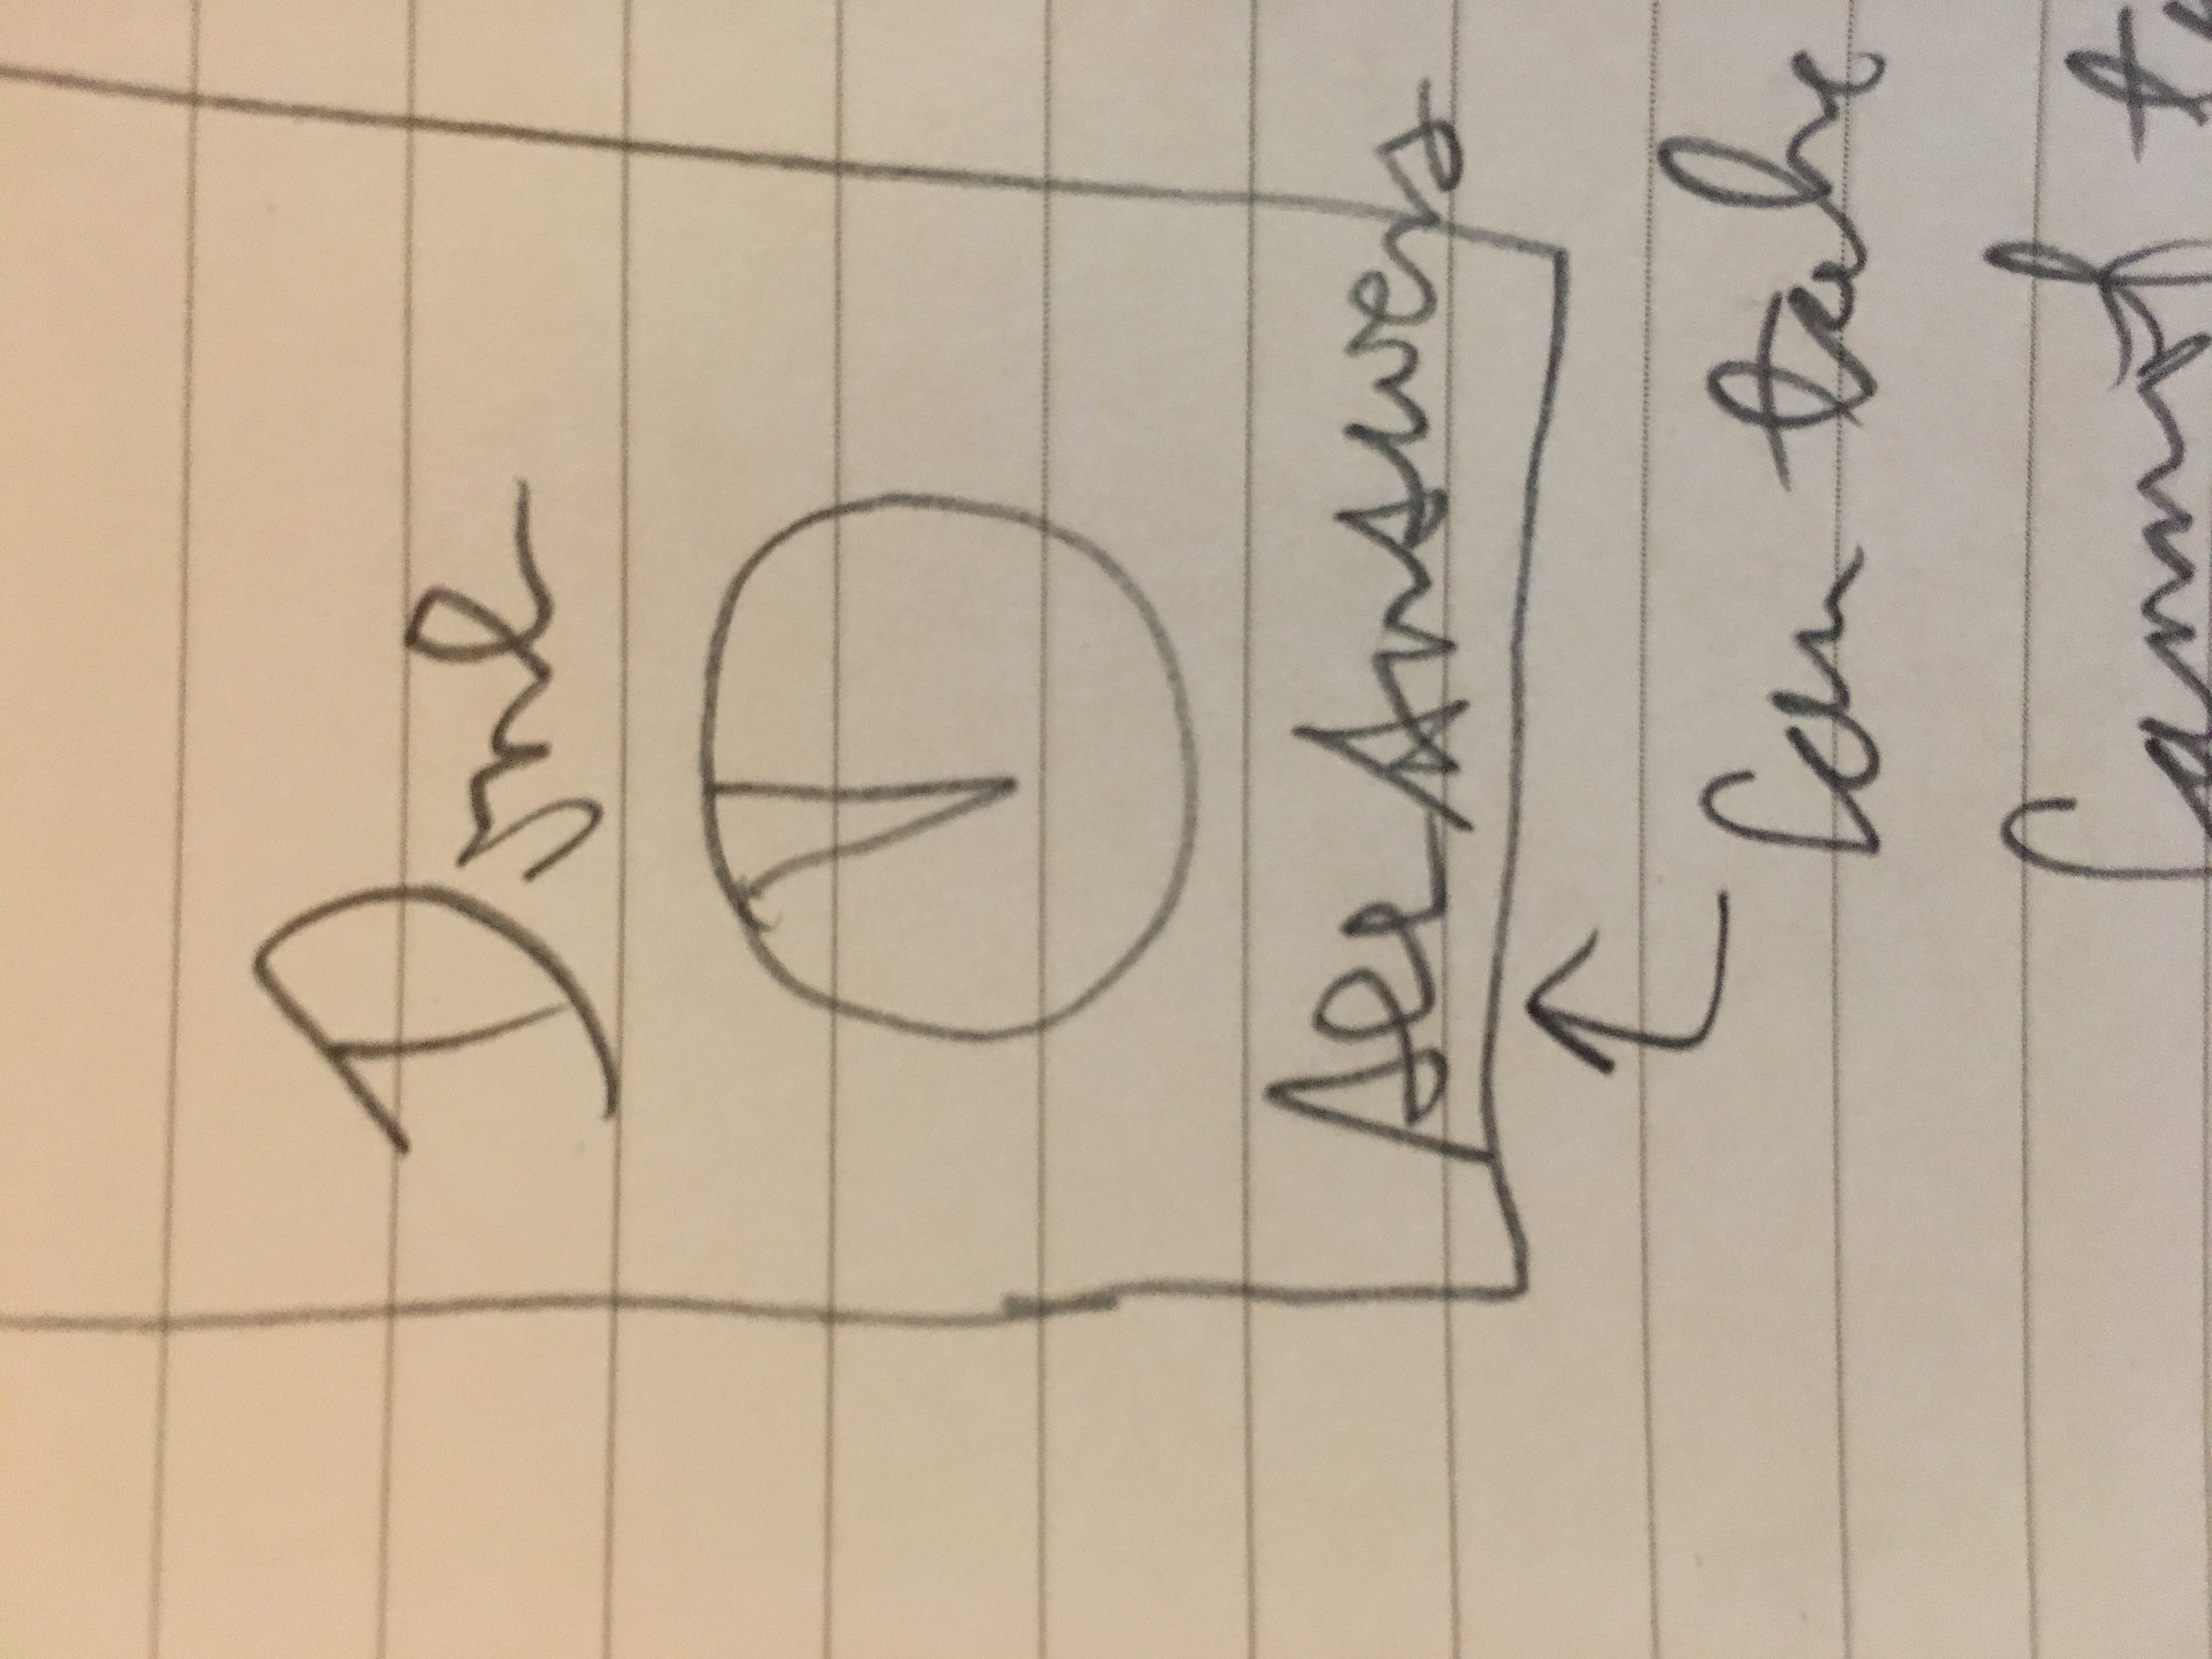 Done
See Answers
Can take
Cannot